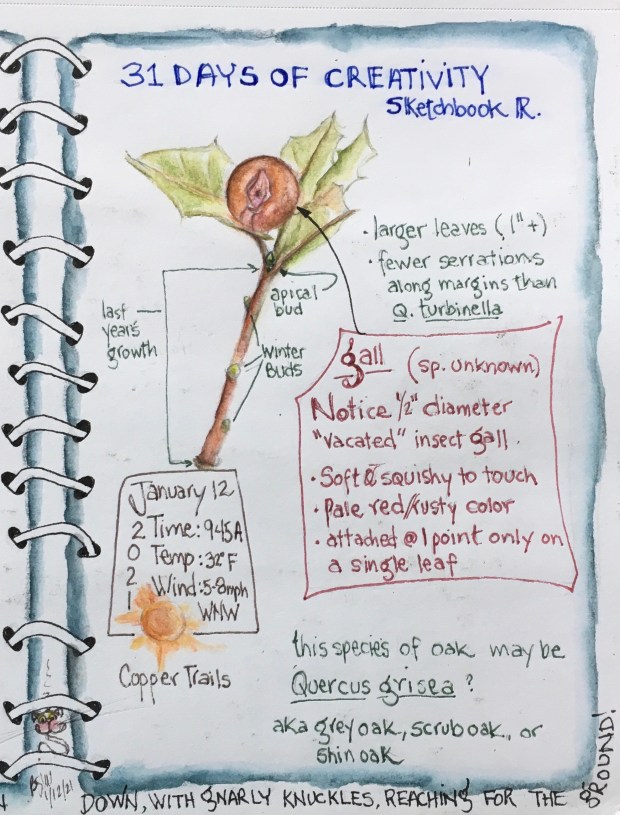 31 DAYS OF CREATIVITY
Sketchbook R.
• larger leaves (1"+)
• fewer serrations
along margins than
Q. turbinella
apical
bud
last
year's
growth
winter
Buds
gall (sp. unknown)
Notice 1/2" diameter
"vacated" insect gall.
• Soft & squishy to touch
• Pale red/rusty color
• attached @ 1 point only on
a single leaf
January 12
2021
Time: 945A
Temp: 32°F
Wind: 5-8mph
WNW
Copper Trails
this species of oak may be
Quercus grisea?
aka grey oak, scrub oak, or
shin oak
1/12/21
DOWN, WITH gNARLY KNUCKLES, REACHING FOR THE gROUND!